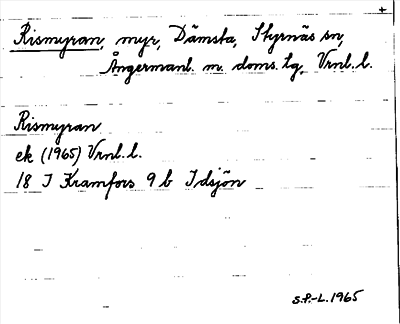 +
Rismyran, myr, Dämsta, Styrnäs sn,
Ångermanl. m. doms. tg, Vrnl. l.
Rismyran
ek (1965) Vrnl. l.
18 I Kramfors 9 b Idsjön
S.P.-L. 1965